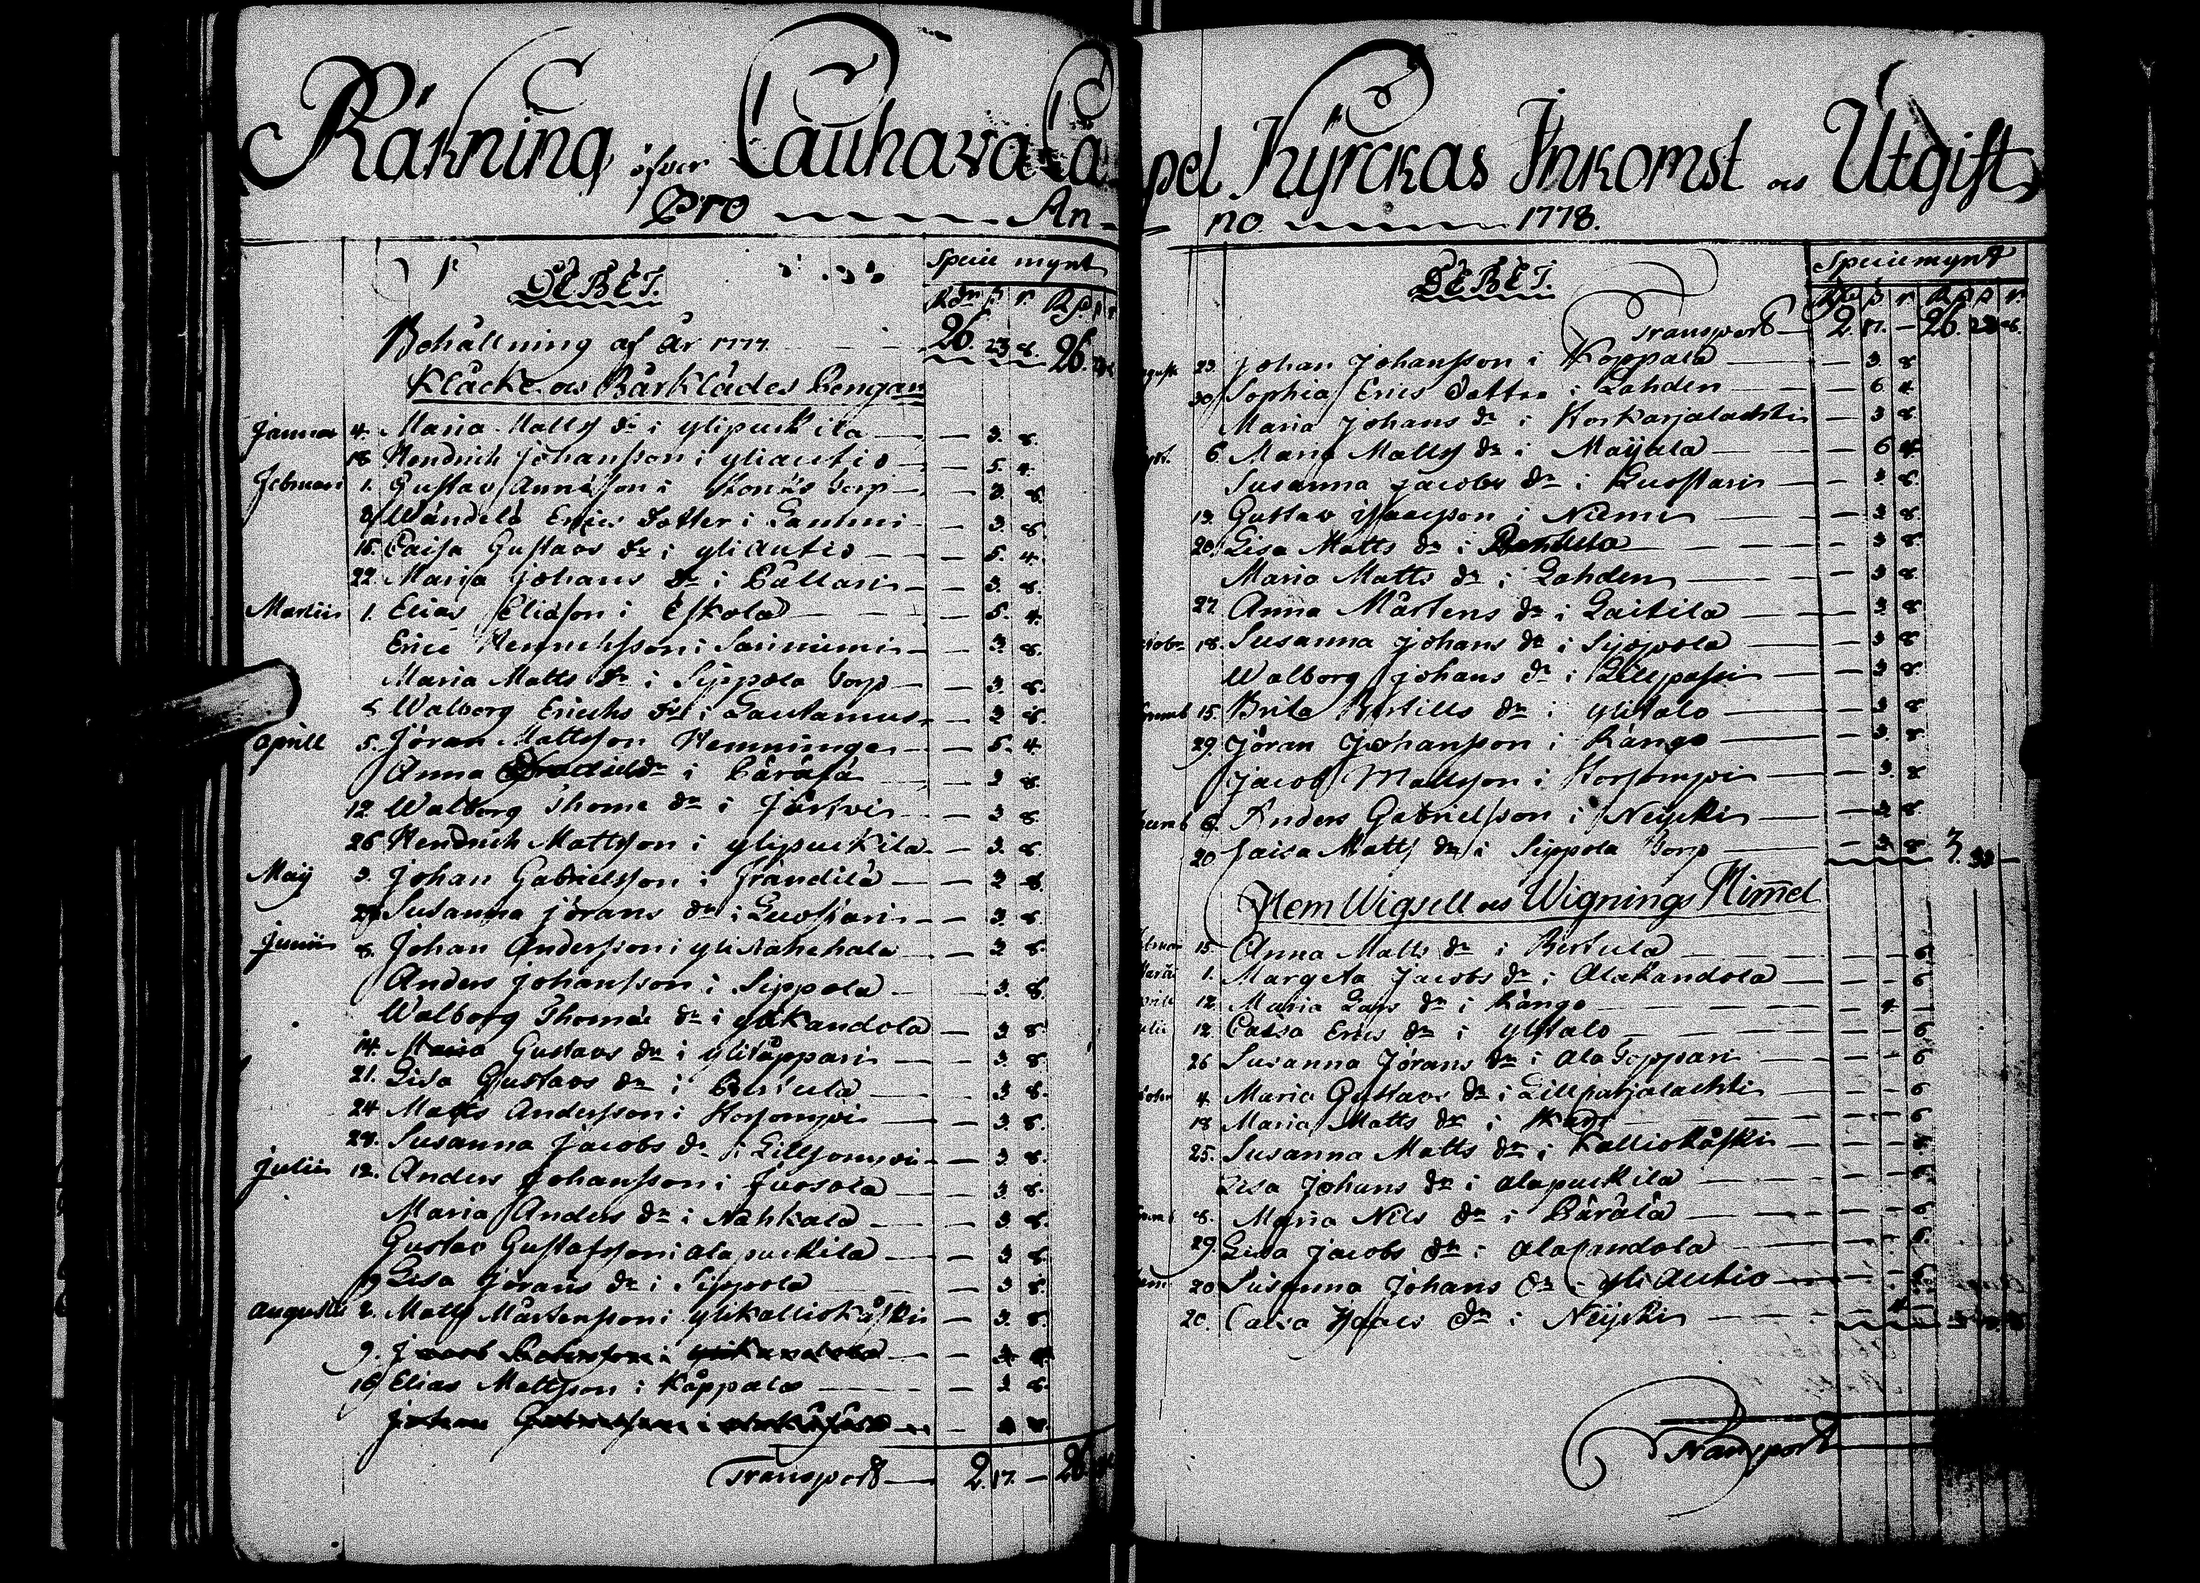 Räkning öfver Lauhava Ca
Pro An-
DEBET.
Specie mynt
Rdr ß r. Rd. ß r
Behållning af År 1777 26. 23 8. 26.
Klåcke- och Bårklädes Pengar
Januar 4. Maria Matts dr i ylipuckila — 3. 8.
18 Hendrich Johansson i yliautio — 5. 4.
Februari 1. Gustav i torp — 3. 8.
8 Erics Dotter i Lammi — 3. 8
15. Caisa Gustavs dr i yliautio — 5. 4.
22. Maria Johans dr i — 3. 8.
Martii 1. Elias Eliasson i Eskola — 5. 4.
Eric i — 3 8.
Maria Matts dr i Sippola torp — 3. 8.
8. Walborg Erichs dr i — 3 8.
Aprill 5. Jöran Mattsson — 5. 4
Anna i — 3 8.
12. Walborg Thome dr i — 3 8.
26 Hendrich Mattsson i ylipuckila — 3. 8.
Maij 3. Johan Gabrielsson i Frandila — 3 8.
Susanna Jörans dr i Luostari — 3. 8.
Junii 8. Johan Andersson i — 3 8.
Anders Johansson i Sippola — 3. 8.
Walborg Thomæ dr i ylikandola — 3 8
14. Maria Gustavs dr i ylitåppari — 3 8.
21. Lisa Gustavs dr i Bertula — 3 8.
24 Matts Andersson i Korsompi — 3. 8.
28. Susanna Jacobs dr i Lillsompi — 3 8.
Julii 12. Anders Johansson i Fuosola — 3 8.
Maria Anders dr i Nahkala — 3 8.
Gustav Gustafsson i alapuckila — 3 8
19 Lisa Jörans dr i Sippola — 3 8.
Augusti 2. Matts Mårtensson i ylikallioskåski — 3. 8.
9. i
16 Elias Mattsson i Kåppala — 3 8.
Transport — 2. 17. — 26.
pel Kyrckas Inkomst och Utgift
no 1778.
DEBET.
Specie mynt
Rdr ß r Rd ß r.
Transport — 2. 17. — 26. 23 8.
23. Johan Johansson i Koppala — 3. 8
30 Sophia Erics Dotter i Lahden — 6 4
Maria Johans dr i Korkarjalachti — 3 8.
6. Maria Matts dr i Maijala — 6 4.
Susanna Jacobs dr i Luostari — 3 8.
13. Gustav Isaacsson i Niemi — 3 8.
20. Lisa Matts dr i — 3 8.
Maria Matts dr i Lahden — 3 8.
27. Anna Mårtens dr i Laitila — 3 8.
18. Susanna Johans dr i Sippola — 3 8.
Walborg Johans dr i — 3 8.
15. Brita Bertills dr i ylitalo — 3 8
29. Jöran Johansson i Kango — 3. 8
Jacob Mattsson i Korsompi — 3. 8
6. Anders Gabrielsson i Neijcki — 3 8.
20 Caisa Matts dr i Sippola torp — 3 8 3. 33 —
Hem Wigsell och Wignings Himmel
15. Anna Matts dr i Bertula — 6.
1. Margeta Jacobs dr i Alakandola — 6
12. Maria Lars dr i Kångo — 4
12. Caisa Erics dr i ylitalo — 6
26 Susanna Jörans dr i ala Toppari — 6
4. Maria Gustavs dr i Lillpatjalachti — 6
18 Maria Matts dr i — 6
25. Susanna Matts dr i Kallioskåski — 6.
Lisa Johans dr i alapuckila — 6
8. Maria Nils dr i Bärälä — 6
29. Lisa Jacobs dr i alakandola — 6.
20 Susanna Johans dr i yli autio — 6
20. Caisa Isaacs dr i Neijcki —
Transport